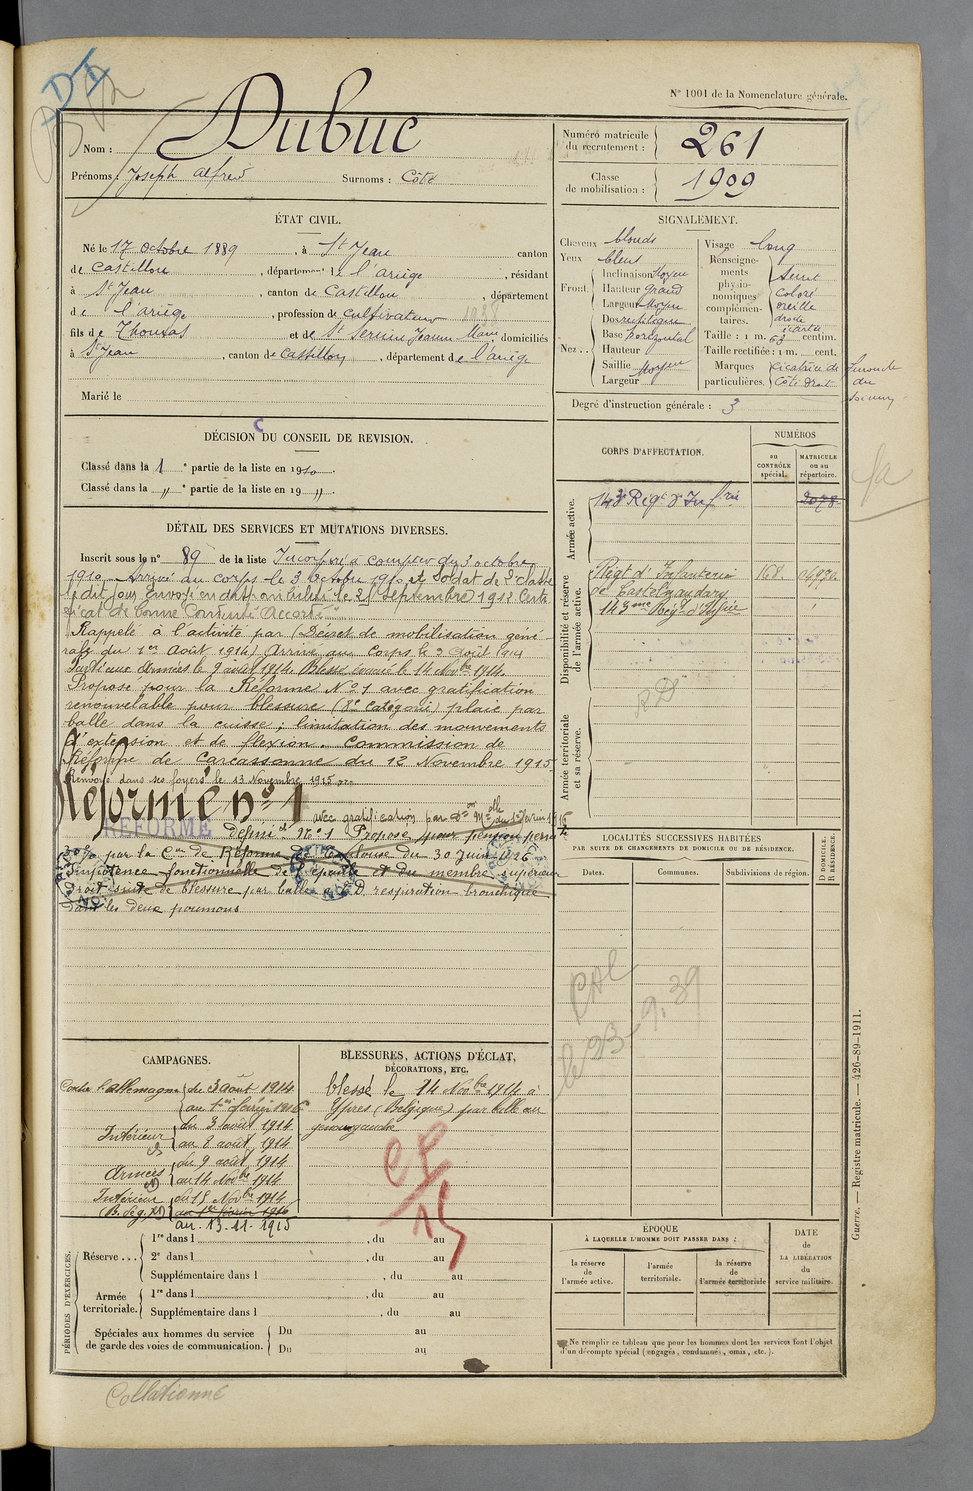 N° 1001 de la Nomenclature générale.
Nom : Dubuc
Prénoms : Joseph Alfred Surnoms : Côte
Numéro matricule du recrutement : 261
Classe de mobilisation : 1909
ÉTAT CIVIL.
Né le 17 octobre 1889, à St Jean canton
de Castillon, département de l'ariège, résidant
à St Jean, canton de Castillon, département
de l'ariège, profession de cultivateur
fils de Thomas et de St Sernin Jeanne Marie, domiciliés
à St Jean, canton de Castillon, département de l'ariège
Marié le
SIGNALEMENT.
Cheveux blonds
Yeux bleus
Front
Inclinaison Moyen
Hauteur Grand
Largeur Moyen
Nez
Dos rectiligne
Base horizontal
Hauteur
Saillie Moyen
Largeur
Visage long
Renseignements physionomiques complémentaires.
Coloré
oreille
droite
écartée
Taille : 1 m. 63 centim.
Taille rectifiée : 1 m. cent.
Marques particulières. Cicatrice de furoncle
Côté droit du
Degré d'instruction générale : 3
DÉCISION DU CONSEIL DE REVISION.
Classé dans la 1e partie de la liste en 1910.
Classé dans la " e partie de la liste en 19 ".
DÉTAIL DES SERVICES ET MUTATIONS DIVERSES.
Inscrit sous le n° 89 de la liste Incorporé à compter du 3 octobre
1910. Arrivé au corps le 3 octobre 1910 et Soldat de 2e classe
le dit jour. Envoyé en disponibilité le 25 Septembre 1912. Certi-
ficat de bonne Conduite Accordé.
Rappelé à l'activité par (Décret de mobilisation géné-
rale du 1er Août 1914) Arrivé au Corps le 3 Août 1914
Parti aux Armées le 9 août 1914. Blessé évacué le 14 Novbre 1914.
Proposé pour la Réforme N° 1 avec gratification
renouvelable pour blessure (8e catégorie) plaie par
balle dans la cuisse ; limitation des mouvements
d'extension et de flexion. Commission de
Réforme de Carcassonne du 12 Novembre 1915.
Renvoyé dans ses foyers le 13 Novembre 1915
Réformé n° 1 avec gratification par Don Melle du 1er février 1916
RÉFORMÉ
Définif N° 1 Proposé pour pension perm te
30% par la Con de Réforme de Toulouse du 30 Juin 1926
Impotence fonctionnelle de l'épaule et du membre supérieur
droit suite de blessure par balle D. respiration bronchique
dans les deux poumons
CORPS D'AFFECTATION.
NUMÉROS
au CONTRÔLE spécial.
MATRICULE ou au répertoire.
Armée active.
143e Régt d'Infrie 2078
Disponibilité et réserve de l'armée active.
Régt d'Infanterie 168.
de Castelnaudary
143ème Rég. d'Infrie
Armée territoriale et sa réserve.
RD
LOCALITÉS SUCCESSIVES HABITÉES
PAR SUITE DE CHANGEMENTS DE DOMICILE OU DE RÉSIDENCE.
Dates. Communes. Subdivisions de région. D DOMICILE. R RÉSIDENCE.
le 23-9.39
CAMPAGNES.
Contre l'allemagne du 3 août 1914
au 1er février 1916
Intérieur du 3 août 1914
au 8 août 1914
Armées du 9 août 1914
au 14 Novbre 1914
Intérieur du 15 Novbre 1914
au 1er février 1916
au. 13.11.1915
BLESSURES, ACTIONS D'ÉCLAT,
DÉCORATIONS, ETC.
blessé le 14 Novbre 1914 à
Ypres (Belgique) par balle au
genou gauche
PÉRIODES D'EXERCICES.
Réserve
1re dans l , du au
2e dans l , du au
Supplémentaire dans l , du au
Armée territoriale.
1re dans l , du au
Supplémentaire dans l , du au
Spéciales aux hommes du service de garde des voies de communication.
Du au
Du au
ÉPOQUE
À LAQUELLE L'HOMME DOIT PASSER DANS :
la réserve de l'armée active.
l'armée territoriale.
la réserve de l'armée territoriale
DATE de LA LIBÉRATION du service militaire.
Ne remplir ce tableau que pour les hommes dont les services font l'objet
d'un décompte spécial (engagés, condamnés, omis, etc.).
Guerre. — Registre matricule. — 426-89-1911.
Collationné